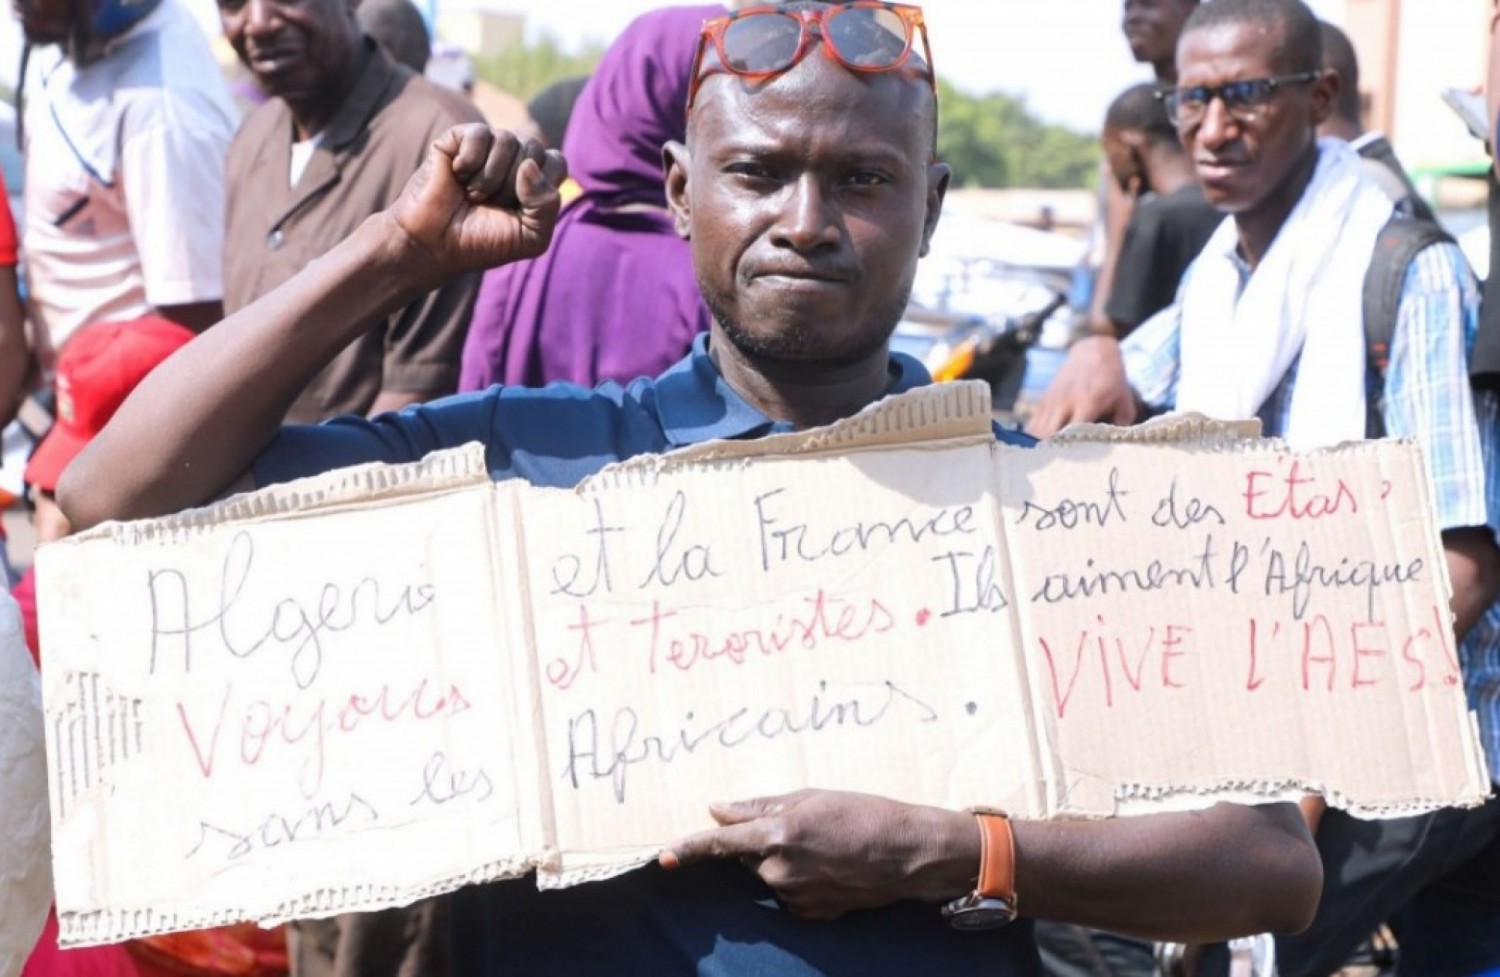 Algerie et la France sont des Etas
Voyous et teroristes. Ils aiment l'Afrique
sans les Africains. VIVE L'AES!